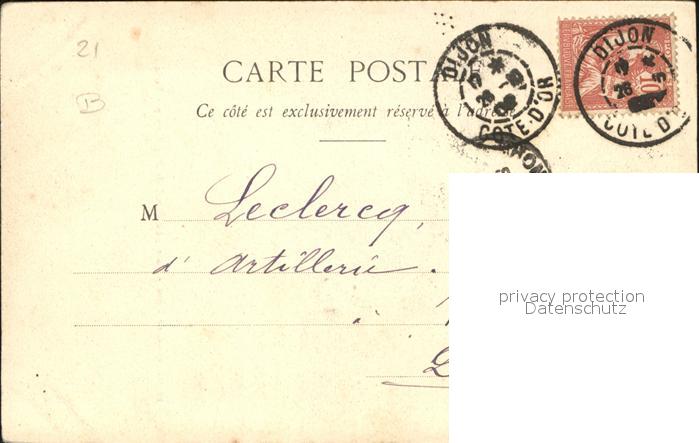 21
B
CARTE POSTA
Ce côté est exclusivement réservé à l'adresse
DIJON
COTE-D'OR
DIJON
COTE D'
10
RÉPUBLIQUE FRANÇAISE
M Leclercq,
d'Artillerie.
à
privacy protection
Datenschutz